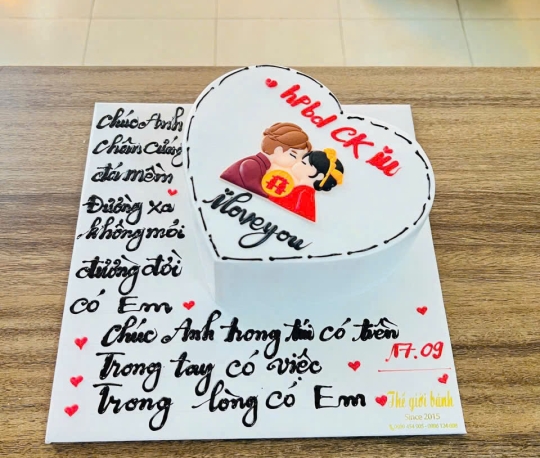 hPbd CK iu
iloveyou
Chúc Anh
chân cứng
đá mềm
Đường xa
không mỏi
đường đời
có Em
Chúc Anh trong túi có tiền
Trong tay có việc
Trong lòng có Em
17.09
Thế giới bánh
Since 2015